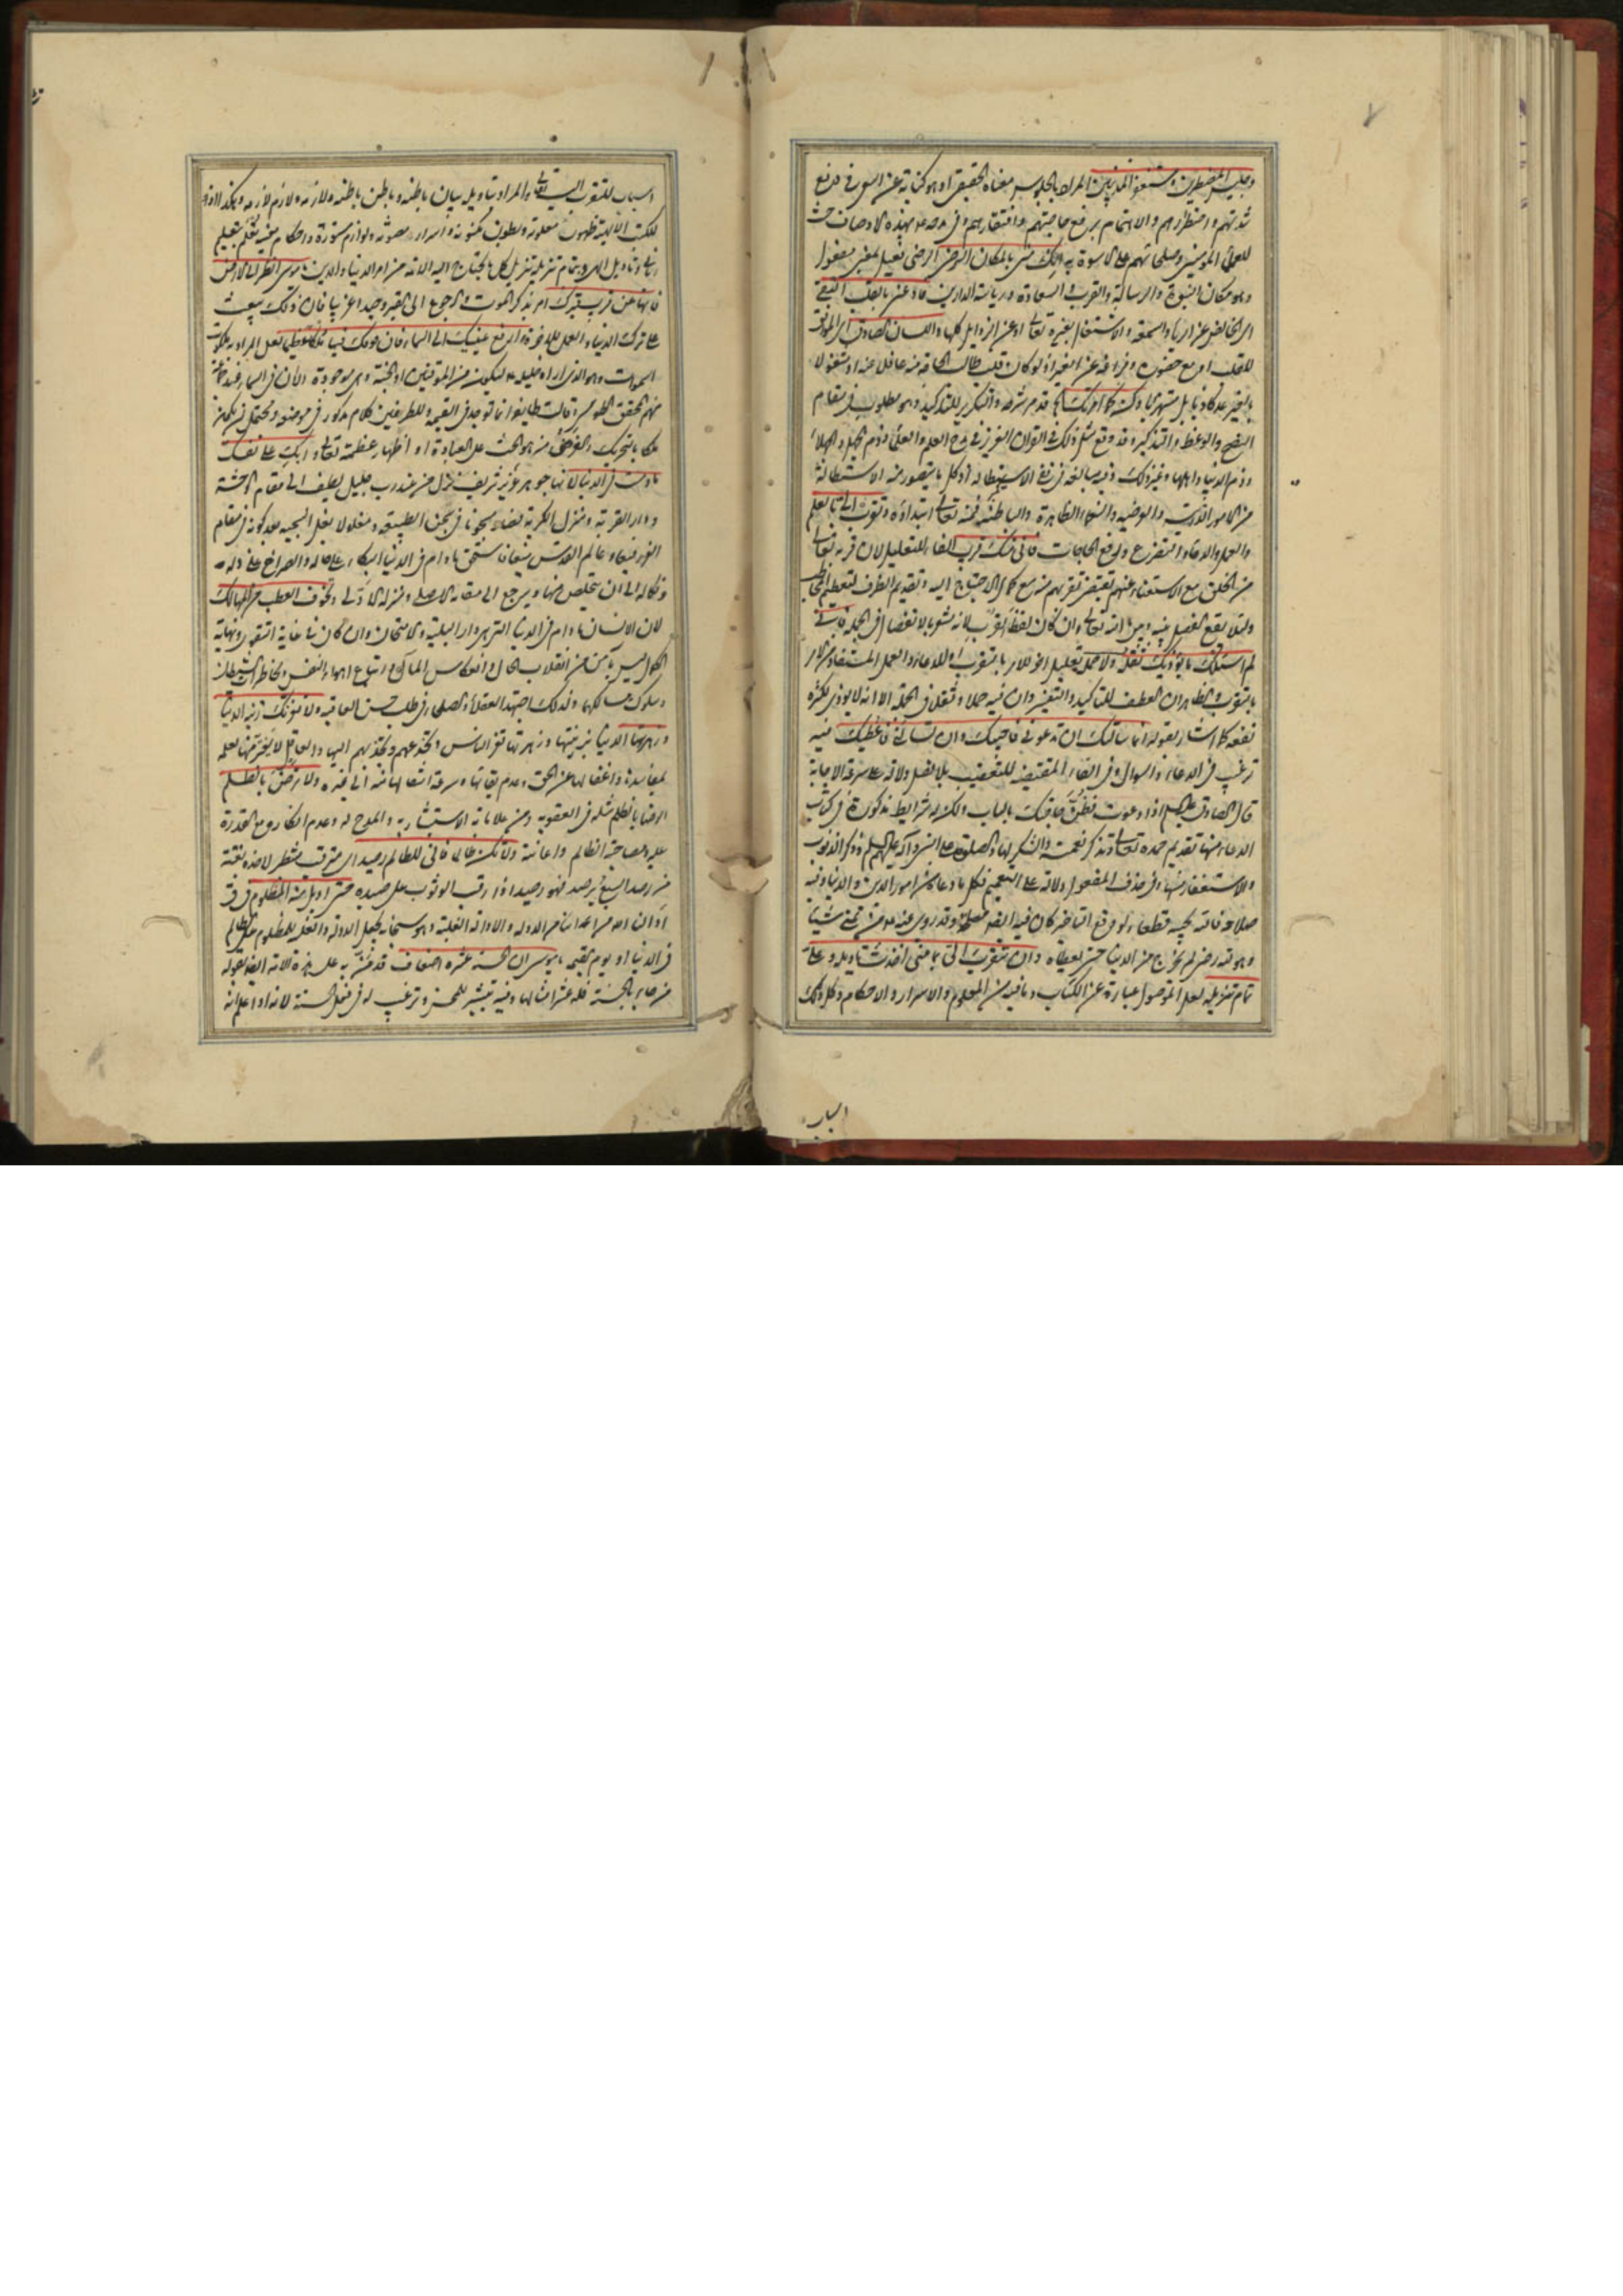 وجليس المضطرين ومستغفر المذنبين المراد بالجلوس معناه الحقيقي او هو كناية عن السعي في رفع
شدتهم واضطرارهم والاهتمام برفع حاجتهم وافتقارهم وفي مدحه بهذه الاوصاف حث
للعلماء المؤمنين وصلحائهم على الاسوة به انك مني بالمكان الرضي الرضي فعيل بمعنى مفعول
وهو مكان النبوة والرسالة والقرب والسعادة ورياسة الدارين فادعني بالقلب النقي
اي الخالص عن الرياء والسمعة والاشتغال بغيره تعالى او عن الرذايل كلها واللسان الصادق اي الموافق
للقلب مع حضوره وفراغه عن الغير اذ لو كان قلب طالب الحاجة منه غافل عنه او مشغولا
بالغير عد كاذبا بل مستهزيا وكن كما امرتك قدم شرحه والتكرير للتذكير وهو مطلوب في مقام
النصح والوعظ والتذكير وقد وقع مثل ذلك في القرآن العزيز في مدح العلم والعلماء وذم الجهل والجهلاء
وذم الدنيا واهلها وغير ذلك وفيه مبالغة في نفي الاستطالة اذ كل ما يتصور من الاستطالة
من الامور الظاهرة والباطنة فمنه تعالى ابتداؤه وتقرب الي بالعلم
والعمل والدعاء والتضرع ورفع الحاجات فاني منك قريب الفاء للتعليل لان قربه تعالى
من الخلق مع الاستغناء عنهم يقتضي تقربهم منه مع كمال الاحتياج اليه وتقديم الظرف لتعظيم المخاطب
ولئلا يقع الفصل بينه وبين الله تعالى وان كان لفظ القرب لانه مشعر بالانفصال في الجملة فاني
لم اسئلك ما يؤذيك ثقله ولا حمله تعليل اخر للامر بالتقرب او للدعاء والعمل المستفاد من الامر
بالتقرب والظاهر ان العطف للتأكيد والتفسير وان فيه حملا وثقلا في الجملة الا انه لا يوذي لكثرة
نفعه كما اشار بقوله انما سالتك ان تدعوني فاجيبك وان تسألني فاعطيك فيه
ترغيب في الدعاء والسوال وفي الفاء المقتضية للتعقيب بلا فصل دلالة على سرعة الاجابة
قال الصادق عليه السلم اذا دعوت فظن حاجتك بالباب ولكن له شرايط مذكورة في كتاب
الدعاء منها تقديم حمده تعالى وتذكر نعمته والشكر لها والصلوة على النبي وآله عليهم السلم وذكر الذنوب
والاستغفار منها وفي حذف المفعول دلالة على التعميم فكل ما دعاه من امور الدين والدنيا وفيه
صلاحه فانه يجيبه قطعا ولو وقع التاخير كان فيه ايضا مصلحة وقد روي عنه من تمنى شيئا
وهو لله رضى لم يخرج من الدنيا حتى يعطاه وان تتقرب الي بما مني اخذت تاويله وعلي
تمام تنزيله لعل الموصول عبارة عن الكتاب وما فيه من العلوم والاسرار والاحكام وكل ذلك
اسباب
اسباب للتقرب اليه تعالى والمراد بتاويله بيان باطنه وباطن باطنه ولازمه ولازم لازمه وهكذا اذ
للكتب الالهية ظهور معلومة وبطون مكنونة واسرار مصونة ولوازم مستورة واحكام مخفية تعلم بتعليم
رباني وتاويل الهي وبتمام تنزيله تنزيل كل ما يحتاج اليه الامة من امر الدنيا والدين يا موسى انظر الى الارض
فانها عن قريب قبرك امر بذكر الموت والرجوع الى القبر وحيدا غريبا فان ذلك يبعث
على ترك الدنيا والعمل للاخرة وارفع عينيك الى السماء فان فوقك فيها ملكا عظيما لعل المراد به ملكوت
السموات وهو الذي اراه خليله ليكون من الموقنين او الجنة وهي موجودة الان في السماء عند جماعة
منهم المحقق الطوسي وقالت طايفة انما توجد في القيمة وللطرفين كلام مذكور في موضعه ويحتمل ان يكون
ملكا بالتحريك والغرض منه هو الحث على العبادة او اظهار عظمته تعالى وابك على نفسك
ما دمت في الدنيا لانها جوهر عزيز شريف نزل من عند رب جليل لطيف الى مقام الوحشة
ودار الغربة ومنزل الكربة فصار مسجونا في سجن الطبيعة ومغلولا بغل السجية بعد كونه في مقام
القرب وعالم القدس فينبغي ما دام في الدنيا البكاء على حاله والصراخ على ذله
ونكاله الى ان يتخلص منها ويرجع الى مقامه الاصلي ومنزله الاولى وتخوف العطب والمهالك
لان الانسان ما دام في الدنيا التي هي دار البلية والامتحان وان كان في غاية التقوى ونهاية
الكمال ليس بآمن من انقلاب الحال وانعكاس المآل واتباع اهواء النفس ومخاطرات الشيطان
وسلوك مسالكها ولذلك اجتهد العقلاء والصلحاء في طلب حسن العاقبة ولا تغرنك زينة الدنيا
وزهرتها الدنيا بزينتها وزهرتها تغر الناس وتخدعهم وتجذبهم اليها والعاقل لا يغتر منها لعلمه
بمفاسدها واغفالها عن الحق وعدم بقائها وسرعة انتقالها منه الى غيره ولا ترض بالظلم
الرضا بالظلم مثله في العقوبة ومن علاماته الاستبشار به والمدح له وعدم انكاره مع القدرة
عليه ومصاحبة الظالم واعانته ولا تكن ظالما فاني للظالم رصيد اي مترقب منتظر لاخذه بغتة
من رصد السبع يرصد فهو رصيد اذا رقب الوثوب على صيده حتى اديل منه المظلوم في ق
اذ ان الله من اعدائنا من الدولة والادالة الغلبة وهو سبحانه يجعل الدولة والغلبة للمظلوم على الظالم
في الدنيا او يوم القيمة يا موسى ان الحسنة عشرة اضعاف قد من به على هذه الامة ايضا بقوله
من جاء بالحسنة فله عشر امثالها وفيه تبشير للمحسن وترغيب له في فعل الحسنة لانه اذا علم انه